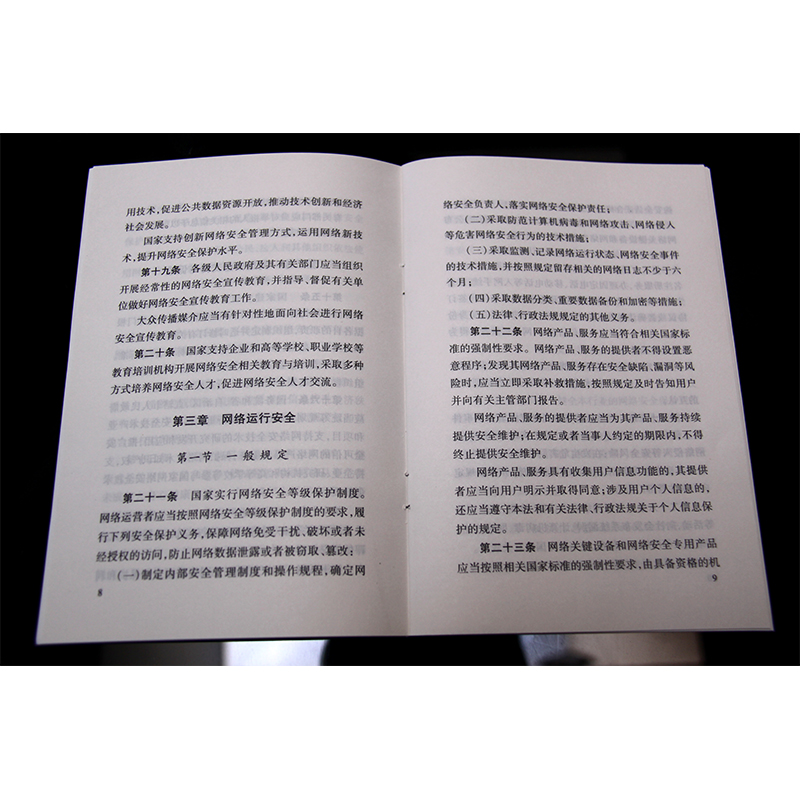 用技术,促进公共数据资源开放,推动技术创新和经济
社会发展。
国家支持创新网络安全管理方式,运用网络新技
术,提升网络安全保护水平。
第十九条 各级人民政府及其有关部门应当组织
开展经常性的网络安全宣传教育,并指导、督促有关单
位做好网络安全宣传教育工作。
大众传播媒介应当有针对性地面向社会进行网络
安全宣传教育。
第二十条 国家支持企业和高等学校、职业学校等
教育培训机构开展网络安全相关教育与培训,采取多种
方式培养网络安全人才,促进网络安全人才交流。
第三章 网络运行安全
第一节 一般规定
第二十一条 国家实行网络安全等级保护制度。
网络运营者应当按照网络安全等级保护制度的要求,履
行下列安全保护义务,保障网络免受干扰、破坏或者未
经授权的访问,防止网络数据泄露或者被窃取、篡改:
(一)制定内部安全管理制度和操作规程,确定网
8
络安全负责人,落实网络安全保护责任;
(二)采取防范计算机病毒和网络攻击、网络侵入
等危害网络安全行为的技术措施;
(三)采取监测、记录网络运行状态、网络安全事件
的技术措施,并按照规定留存相关的网络日志不少于六
个月;
(四)采取数据分类、重要数据备份和加密等措施;
(五)法律、行政法规规定的其他义务。
第二十二条 网络产品、服务应当符合相关国家标
准的强制性要求。网络产品、服务的提供者不得设置恶
意程序;发现其网络产品、服务存在安全缺陷、漏洞等风
险时,应当立即采取补救措施,按照规定及时告知用户
并向有关主管部门报告。
网络产品、服务的提供者应当为其产品、服务持续
提供安全维护;在规定或者当事人约定的期限内,不得
终止提供安全维护。
网络产品、服务具有收集用户信息功能的,其提供
者应当向用户明示并取得同意;涉及用户个人信息的,
还应当遵守本法和有关法律、行政法规关于个人信息保
护的规定。
第二十三条 网络关键设备和网络安全专用产品
应当按照相关国家标准的强制性要求,由具备资格的机
9